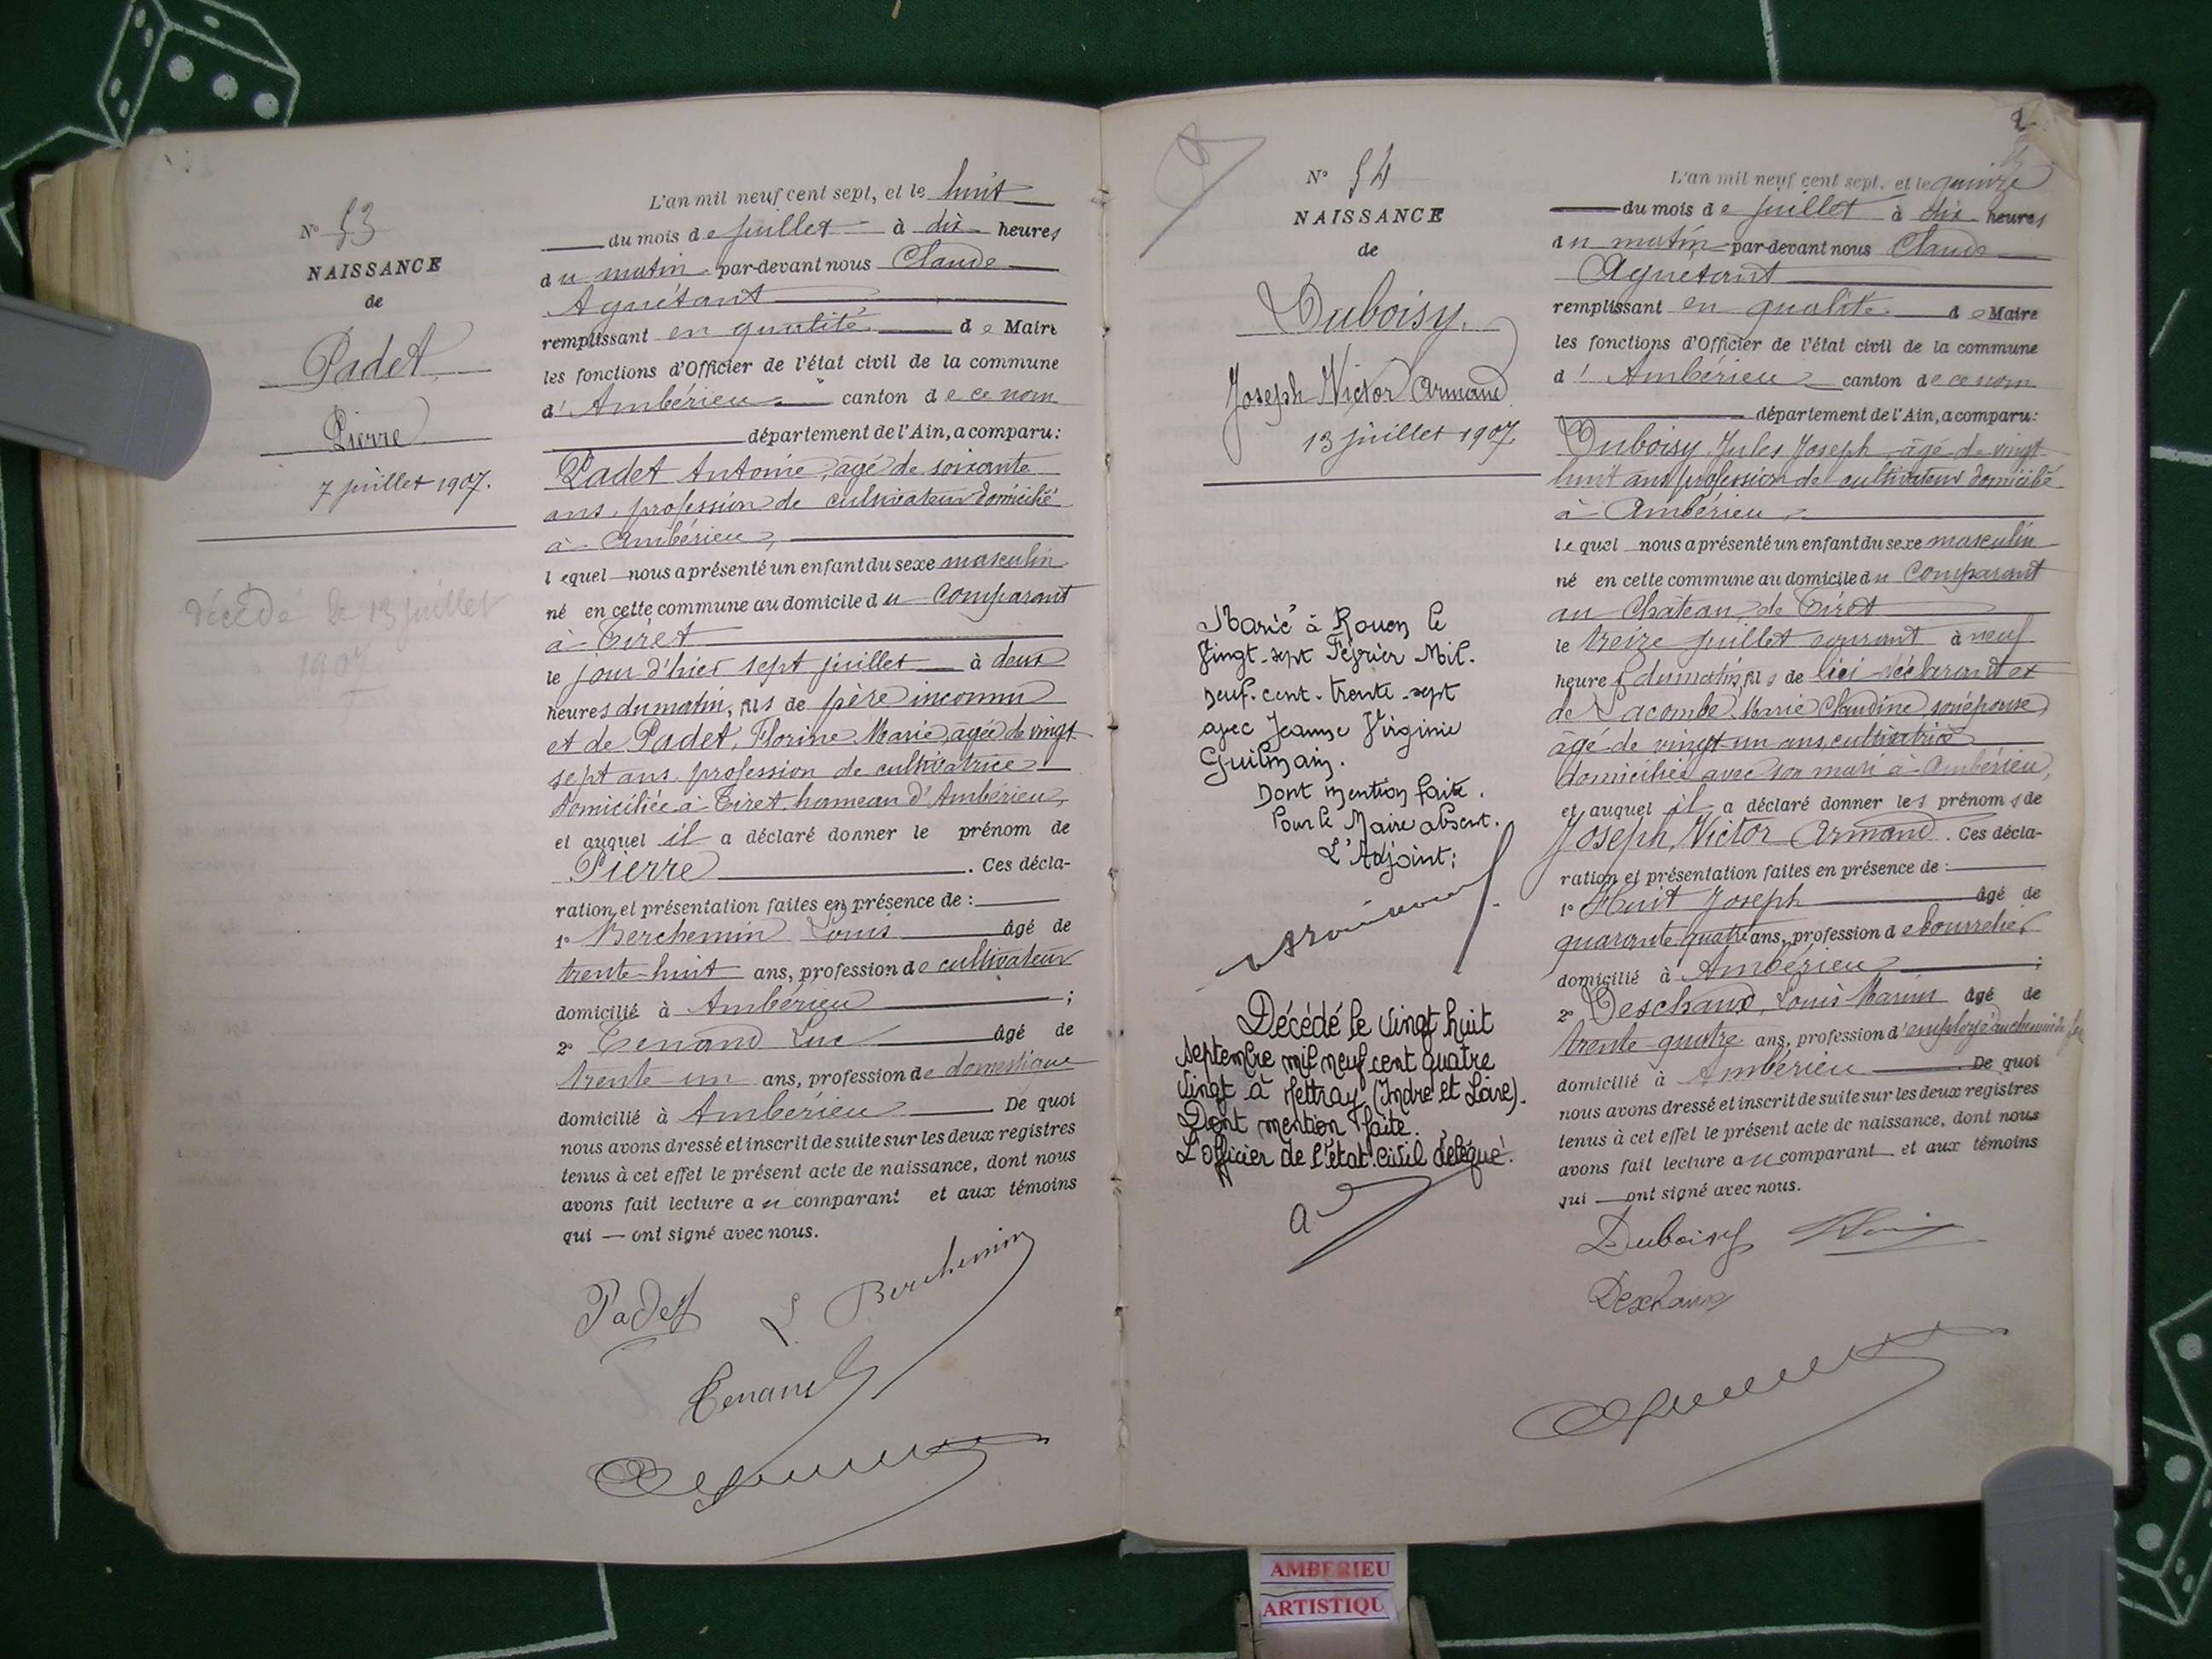 N° 53
NAISSANCE
de
Padet
Pierre
7 juillet 1907.
décédé le 13 juillet
1907
L'an mil neuf cent sept, et le huit
du mois de juillet à dix heures
du matin par-devant nous Claude
Aguétant
remplissant en qualité de Maire
les fonctions d'Officier de l'état civil de la commune
d'Ambérieu canton de ce nom
département de l'Ain, a comparu:
Padet Antoine, âgé de soixante
ans, profession de cultivateur domicilié
à Ambérieu,
lequel nous a présenté un enfant du sexe masculin
né en cette commune au domicile du comparant
à Tiret
le jour d'hier sept juillet à deux
heures du matin, fils de père inconnu
et de Padet, Florine Marie, âgée de vingt
sept ans profession de cultivatrice
domiciliée à Tiret hameau d'Ambérieu,
et auquel il a déclaré donner le prénom de
Pierre . Ces décla-
ration et présentation faites en présence de :
1° Berchemin Louis âgé de
trente-huit ans, profession de cultivateur
domicilié à Ambérieu ;
2° Tenand Luc âgé de
trente-un ans, profession de domestique
domicilié à Ambérieu De quoi
nous avons dressé et inscrit de suite sur les deux registres
tenus à cet effet le présent acte de naissance, dont nous
avons fait lecture au comparant et aux témoins
qui — ont signé avec nous.
Padet L. Berchemin
Tenand
N° 54
NAISSANCE
de
Duboisy.
Joseph Victor Armand
13 juillet 1907.
Marié à Rouen le
Vingt-sept Février Mil-
neuf-cent-trente-sept
avec Jeanne Virginie
Guilmain.
Dont mention faite.
Pour le Maire absent.
L'Adjoint:
Décédé le vingt huit
septembre mil neuf cent quatre
vingt à Mettray (Indre et Loire).
Dont mention faite.
L'officier de l'état civil délégué.
L'an mil neuf cent sept, et le quinze
du mois de juillet à dix heures
du matin par-devant nous Claude
Aguétant
remplissant en qualité de Maire
les fonctions d'Officier de l'état civil de la commune
d'Ambérieu canton de ce nom
département de l'Ain, a comparu:
Duboisy, Jules Joseph, âgé de vingt-
huit ans profession de cultivateur domicilié
à Ambérieu
lequel nous a présenté un enfant du sexe masculin
né en cette commune au domicile du comparant
au Château de Tiret
le treize juillet courant à neuf
heures du matin, fils de lui déclarant et
de Lacombe Marie Claudine, son épouse,
âgé de vingt-un ans, cultivatrice
domiciliée avec son mari à Ambérieu,
et auquel il a déclaré donner les prénoms de
Joseph, Victor Armand. Ces décla-
ration et présentation faites en présence de :
1° Huit Joseph âgé de
quarante-quatre ans, profession de bourrelier
domicilié à Ambérieu ;
2° Deschaux, Louis Marius âgé de
trente quatre ans, profession d'employé au chemin de fer
domicilié à Ambérieu De quoi
nous avons dressé et inscrit de suite sur les deux registres
tenus à cet effet le présent acte de naissance, dont nous
avons fait lecture au comparant et aux témoins
qui — ont signé avec nous.
Duboisy
Deschaux
AMBERIEU
ARTISTIQU